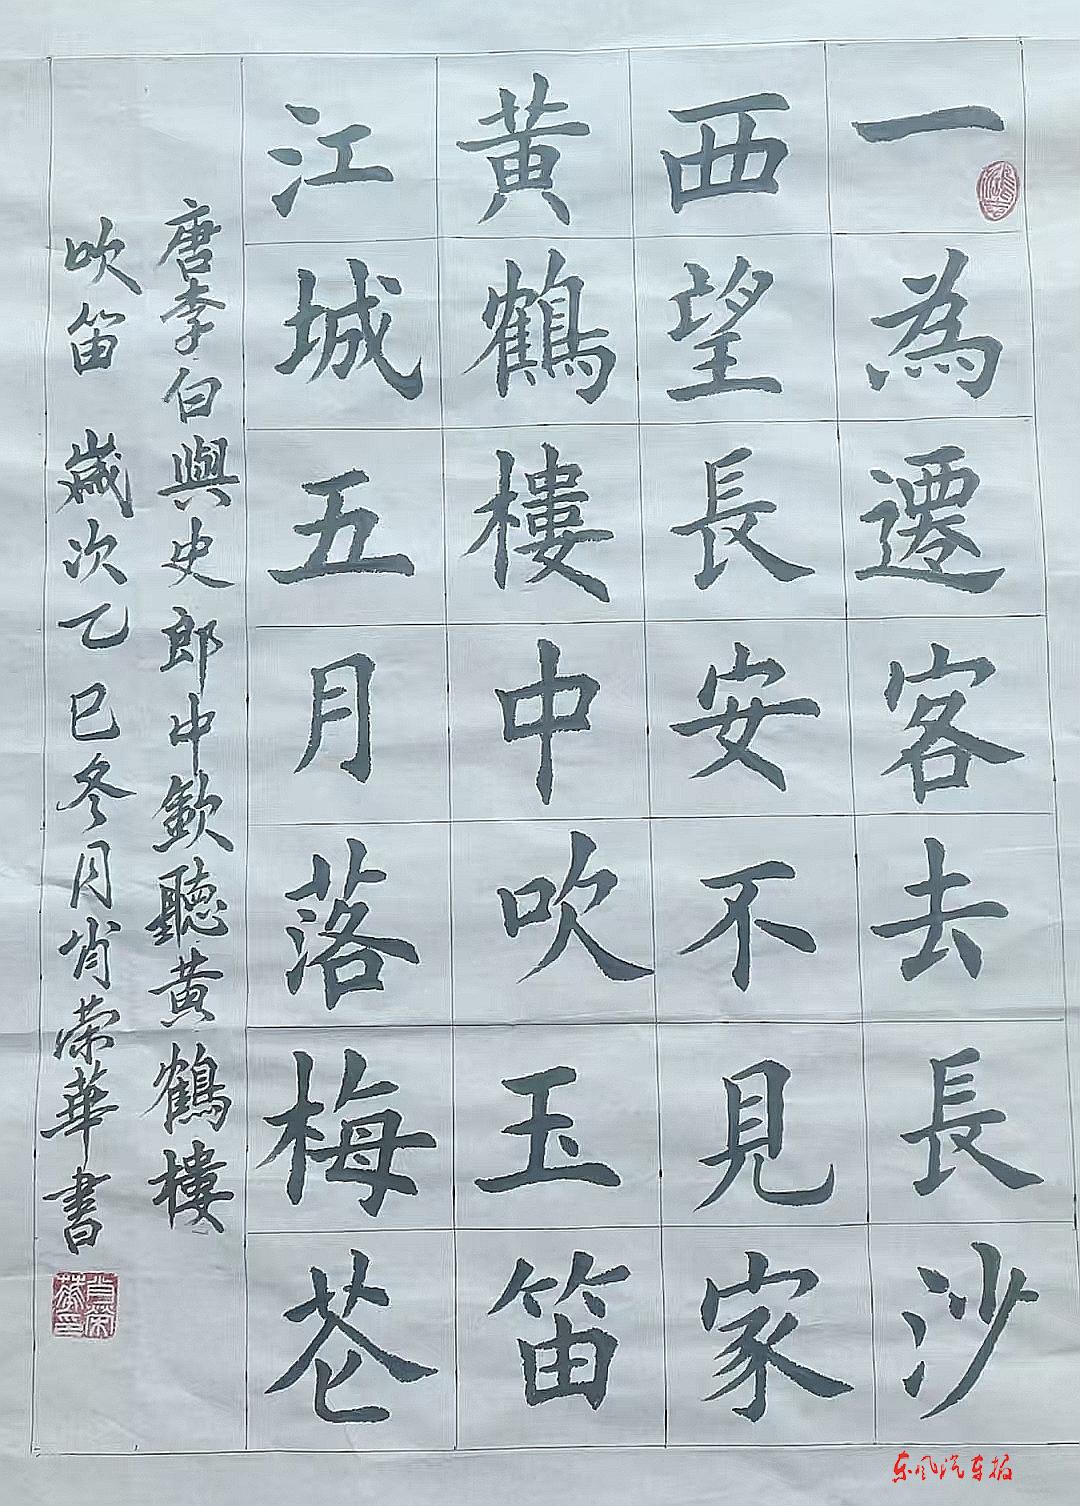 一為遷客去長沙
西望長安不見家
黄鶴樓中吹玉笛
江城五月落梅花
唐李白與史郎中欽聽黄鶴樓
吹笛 歲次乙巳冬月肖荣華書
肖荣華印
东风汽车报